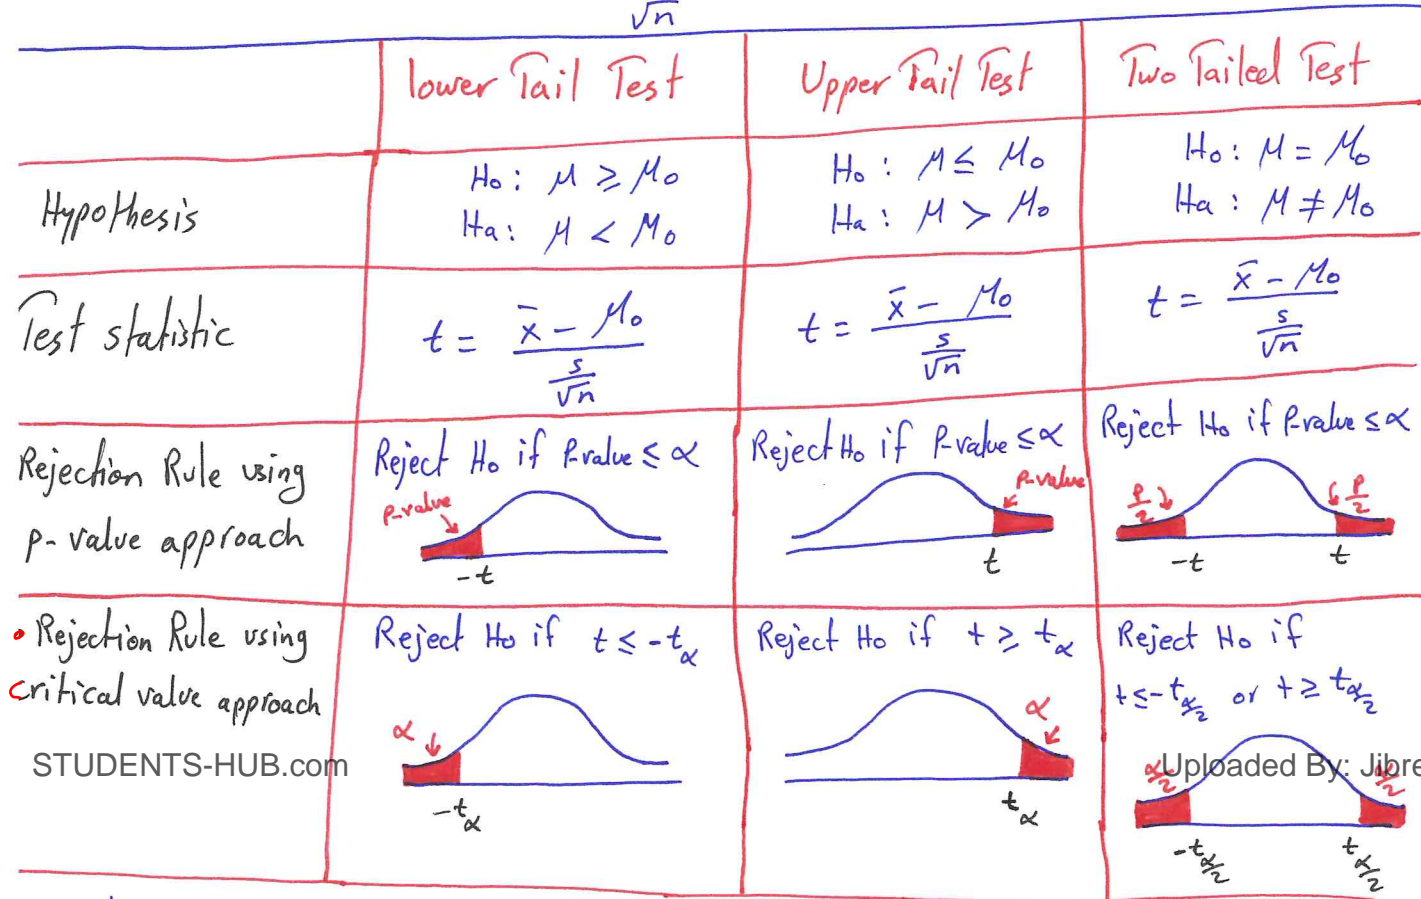 √n
lower Tail Test
Upper Tail Test
Two Tailed Test
Hypothesis
Ho: μ ≥ μo
Ha: μ < μo
Ho: μ ≤ μo
Ha: μ > μo
Ho: μ = μo
Ha: μ ≠ μo
Test statistic
t = (x̄ - μo) / (s/√n)
t = (x̄ - μo) / (s/√n)
t = (x̄ - μo) / (s/√n)
Rejection Rule using
p-value approach
Reject Ho if P-value ≤ α
P-value
-t
Reject Ho if P-value ≤ α
P-value
t
Reject Ho if P-value ≤ α
P/2
P/2
-t
t
• Rejection Rule using
critical value approach
Reject Ho if t ≤ -tα
α
-tα
Reject Ho if t ≥ tα
α
tα
Reject Ho if
t ≤ -tα/2 or t ≥ tα/2
α/2
α/2
-tα/2
tα/2
STUDENTS-HUB.com
Uploaded By: Jibre